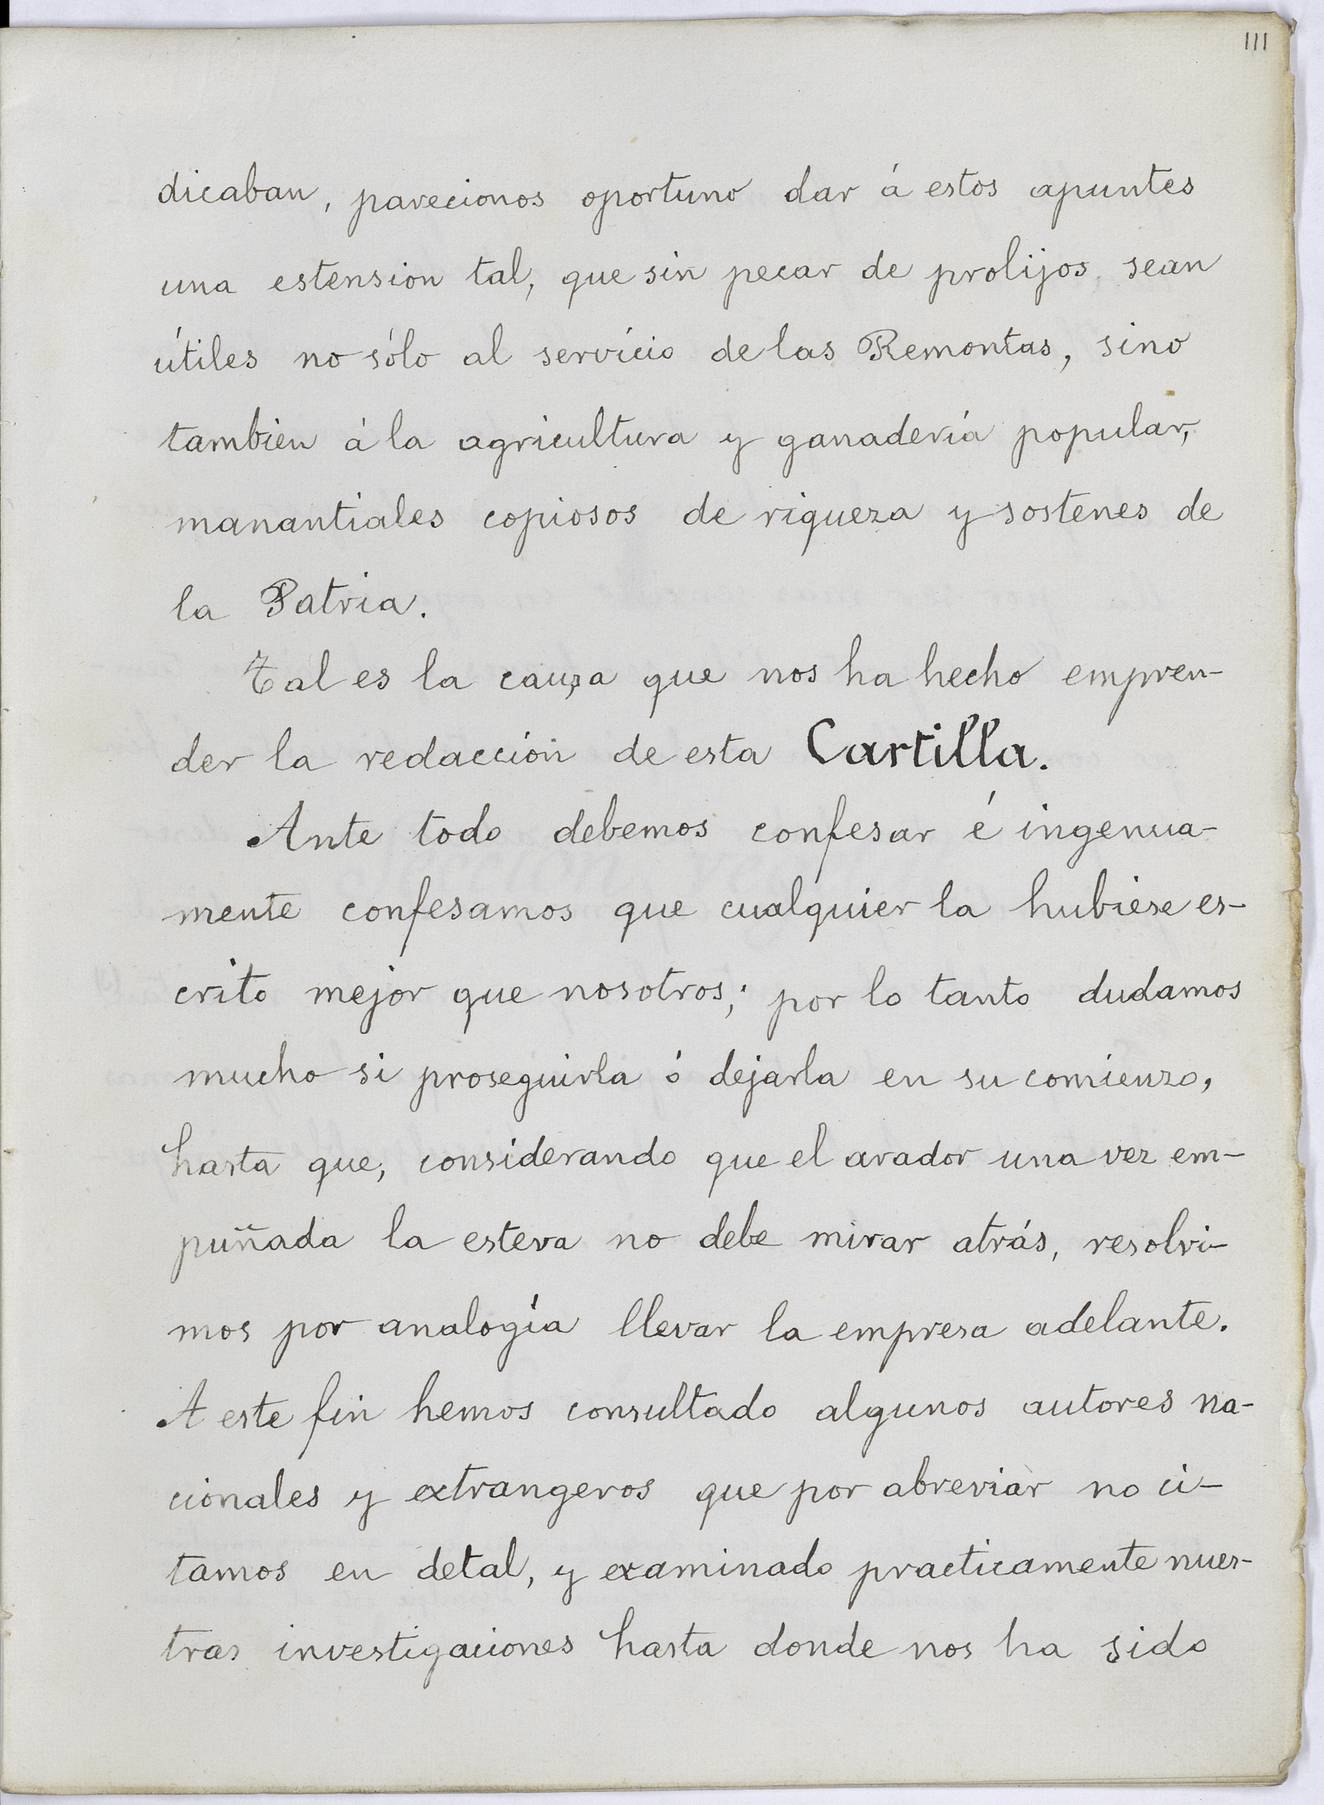 III
dicaban, parecionos oportuno dar á estos apuntes
una estension tal, que sin pecar de prolijos, sean
útiles no sólo al servicio de las Remontas, sino
tambien á la agricultura y ganaderia popular,
manantiales copiosos de riqueza y sostenes de
la Patria.
Tal es la causa que nos ha hecho empren-
der la redacción de esta Cartilla.
Ante todo debemos confesar é ingenua-
mente confesamos que cualquier la hubiese es-
crito mejor que nosotros; por lo tanto dudamos
mucho si proseguirla ó dejarla en su comienzo,
hasta que, considerando que el arador una vez em-
puñada la esteva no debe mirar atrás, resolvi-
mos por analogía llevar la empresa adelante.
A este fin hemos consultado algunos autores na-
cionales y extrangeros que por abreviar no ci-
tamos en detal, y examinado practicamente nues-
tras investigaciones hasta donde nos ha sido